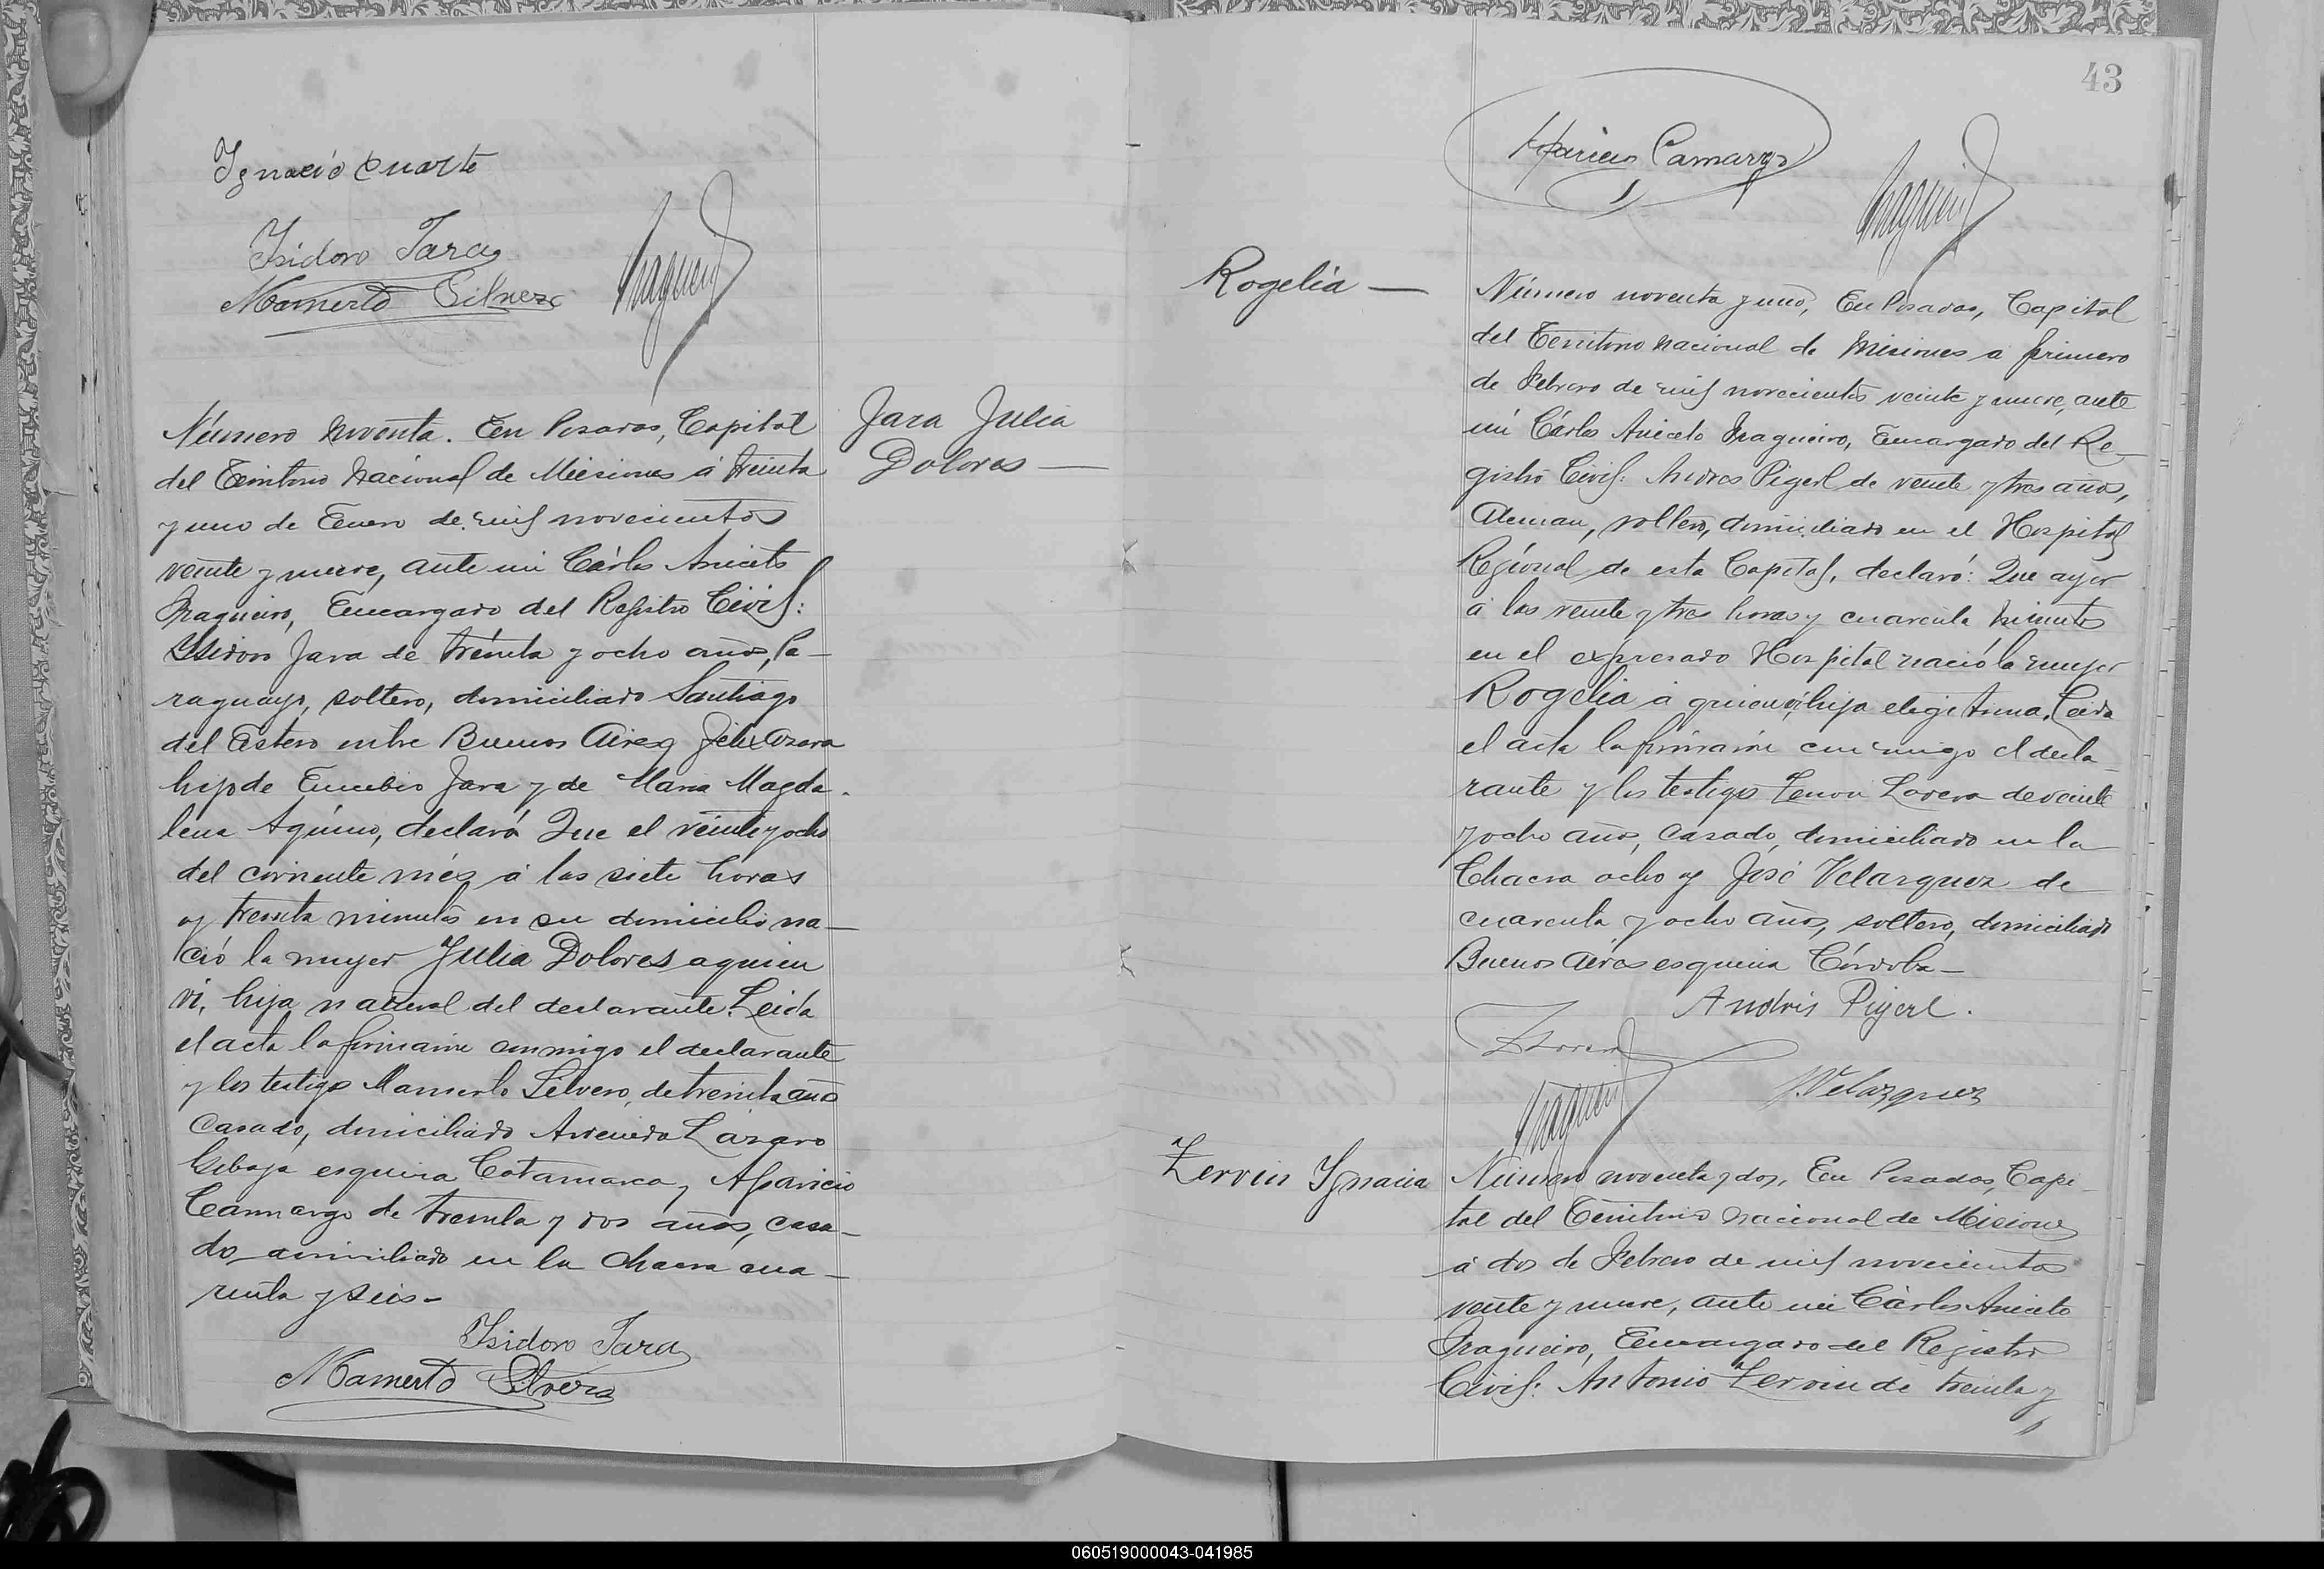 Ignacio Duarte
Isidoro Jara
Mamerto Silvero
Número noventa. En Posadas, Capital
del Territorio Nacional de Misiones á treinta
y uno de Enero de mil novecientos
veinte y nueve, ante mi Cárlos Aniceto
Fragueiro, Encargado del Registro Civil:
Isidoro Jara de treinta y ocho años, Pa-
raguayo, soltero, domiciliado Santiago
del Estero entre Buenos Aires y Félix Azara
hijo de Eusebio Jara y de Maria Magda-
lena Aquino, declaró Que el veinte y ocho
del corriente més á las siete horas
y treinta minutos en su domicilio na-
ció la mujer Julia Dolores a quien
vi, hija natural del declarante. Leida
el acta la firmaron conmigo el declarante
y los testigos Mamerto Silvero, de treinta años
casado, domiciliado Avenida Lázaro
Gibaja esquina Catamarca y Aparicio
Camargo de treinta y dos años, casa-
do domiciliado en la chacra cua-
renta y seis-
Isidoro Jara
Mamerto Silvero
Jara Julia
Dolores —
43
Aparicio Camargo
Rogelia —
Número noventa y uno, En Posadas, Capital
del Territorio Nacional de Misiones á primero
de Febrero de mil novecientos veinte y nueve, ante
mi Cárlos Aniceto Fragueiro, Encargado del Re-
gistro Civil: Andres Pigerl de veinte y tres años,
Aleman, soltero, domiciliado en el Hospital
Regional de esta Capital, declaró: Que ayer
á las veinte y tres horas y cuarenta minutos
en el expresado Hospital nació la mujer
Rogelia á quien vi, hija elegitima. Leida
el acta la firmaron conmigo el decla-
rante y los testigos Zenon Lovera de veinte
y ocho años, casado, domiciliado en la
Chacra ocho y José Velazquez de
cuarenta y ocho años, soltero, domiciliado
Buenos Aires esquina Córdoba-
Andres Pigerl.
J. Velazquez
Zervin Ignacia
Número noventa y dos, En Posadas, Capi-
tal del Territorio Nacional de Misiones
á dos de Febrero de mil novecientos
veinte y nueve, ante mi Cárlos Aniceto
Fragueiro, Encargado del Registro
Civil: Antonio Zervin de treinta y
060519000043-041985